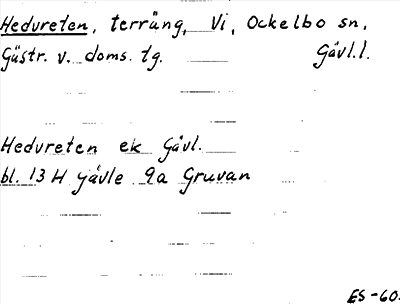 Hedvreten, terräng, Vi, Ockelbo sn,
Gästr. v. doms. tg. Gävl.l.
Hedvreten ek Gävl.
bl. 13 H Gävle 9a Gruvan
ES-60.